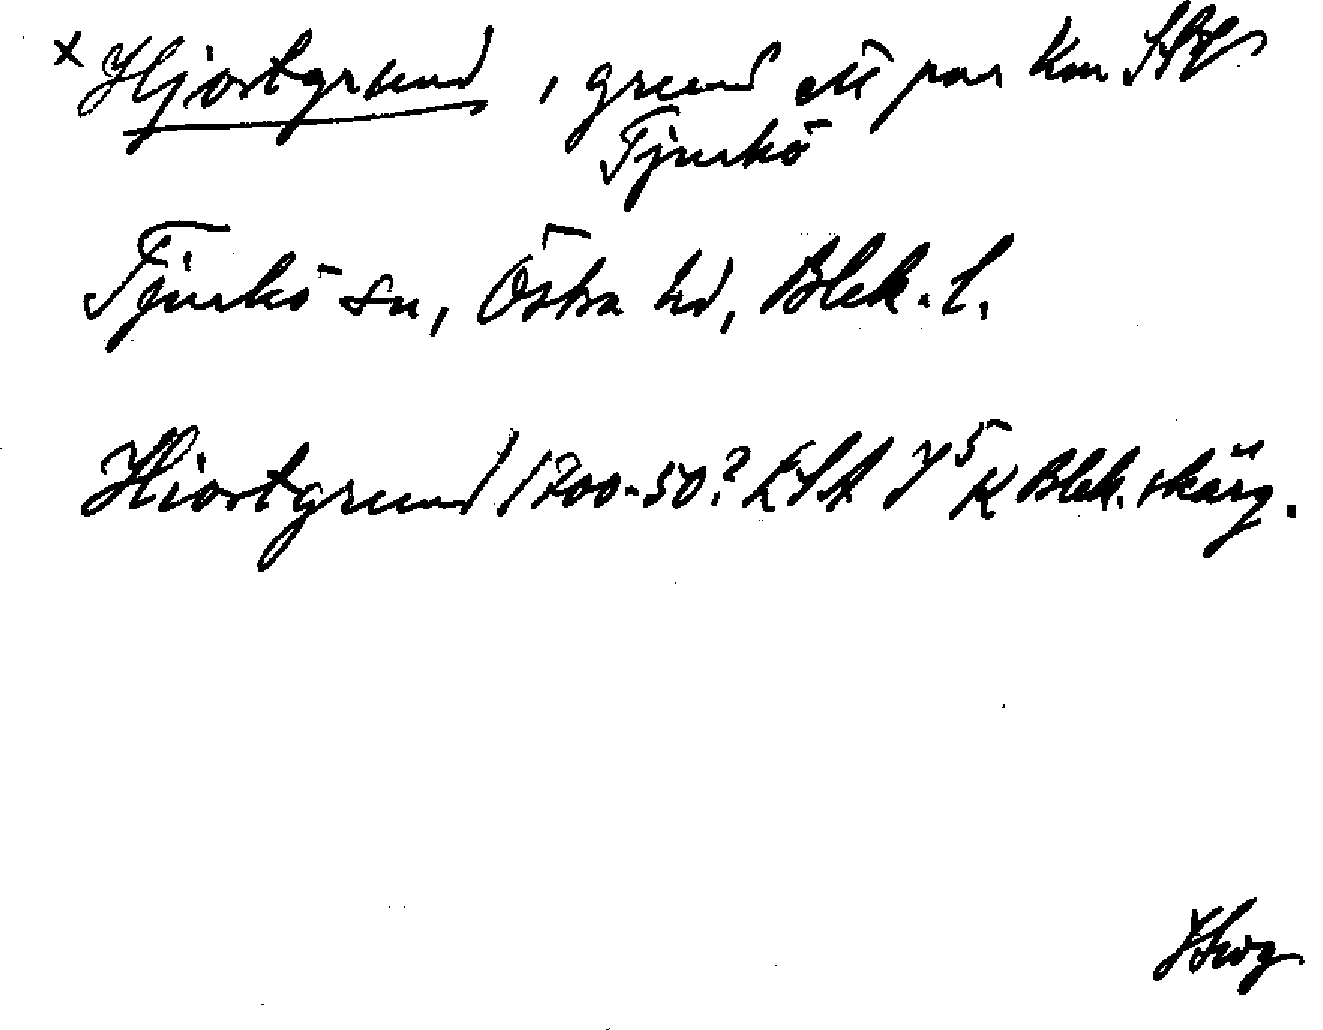 x Hjortgrund, grund ett par km
Tjurkö
Tjurkö sn, Östra hd, Blek. l.
Hiortgrund 1700-50? LSA Y5 K Blek. skärg.